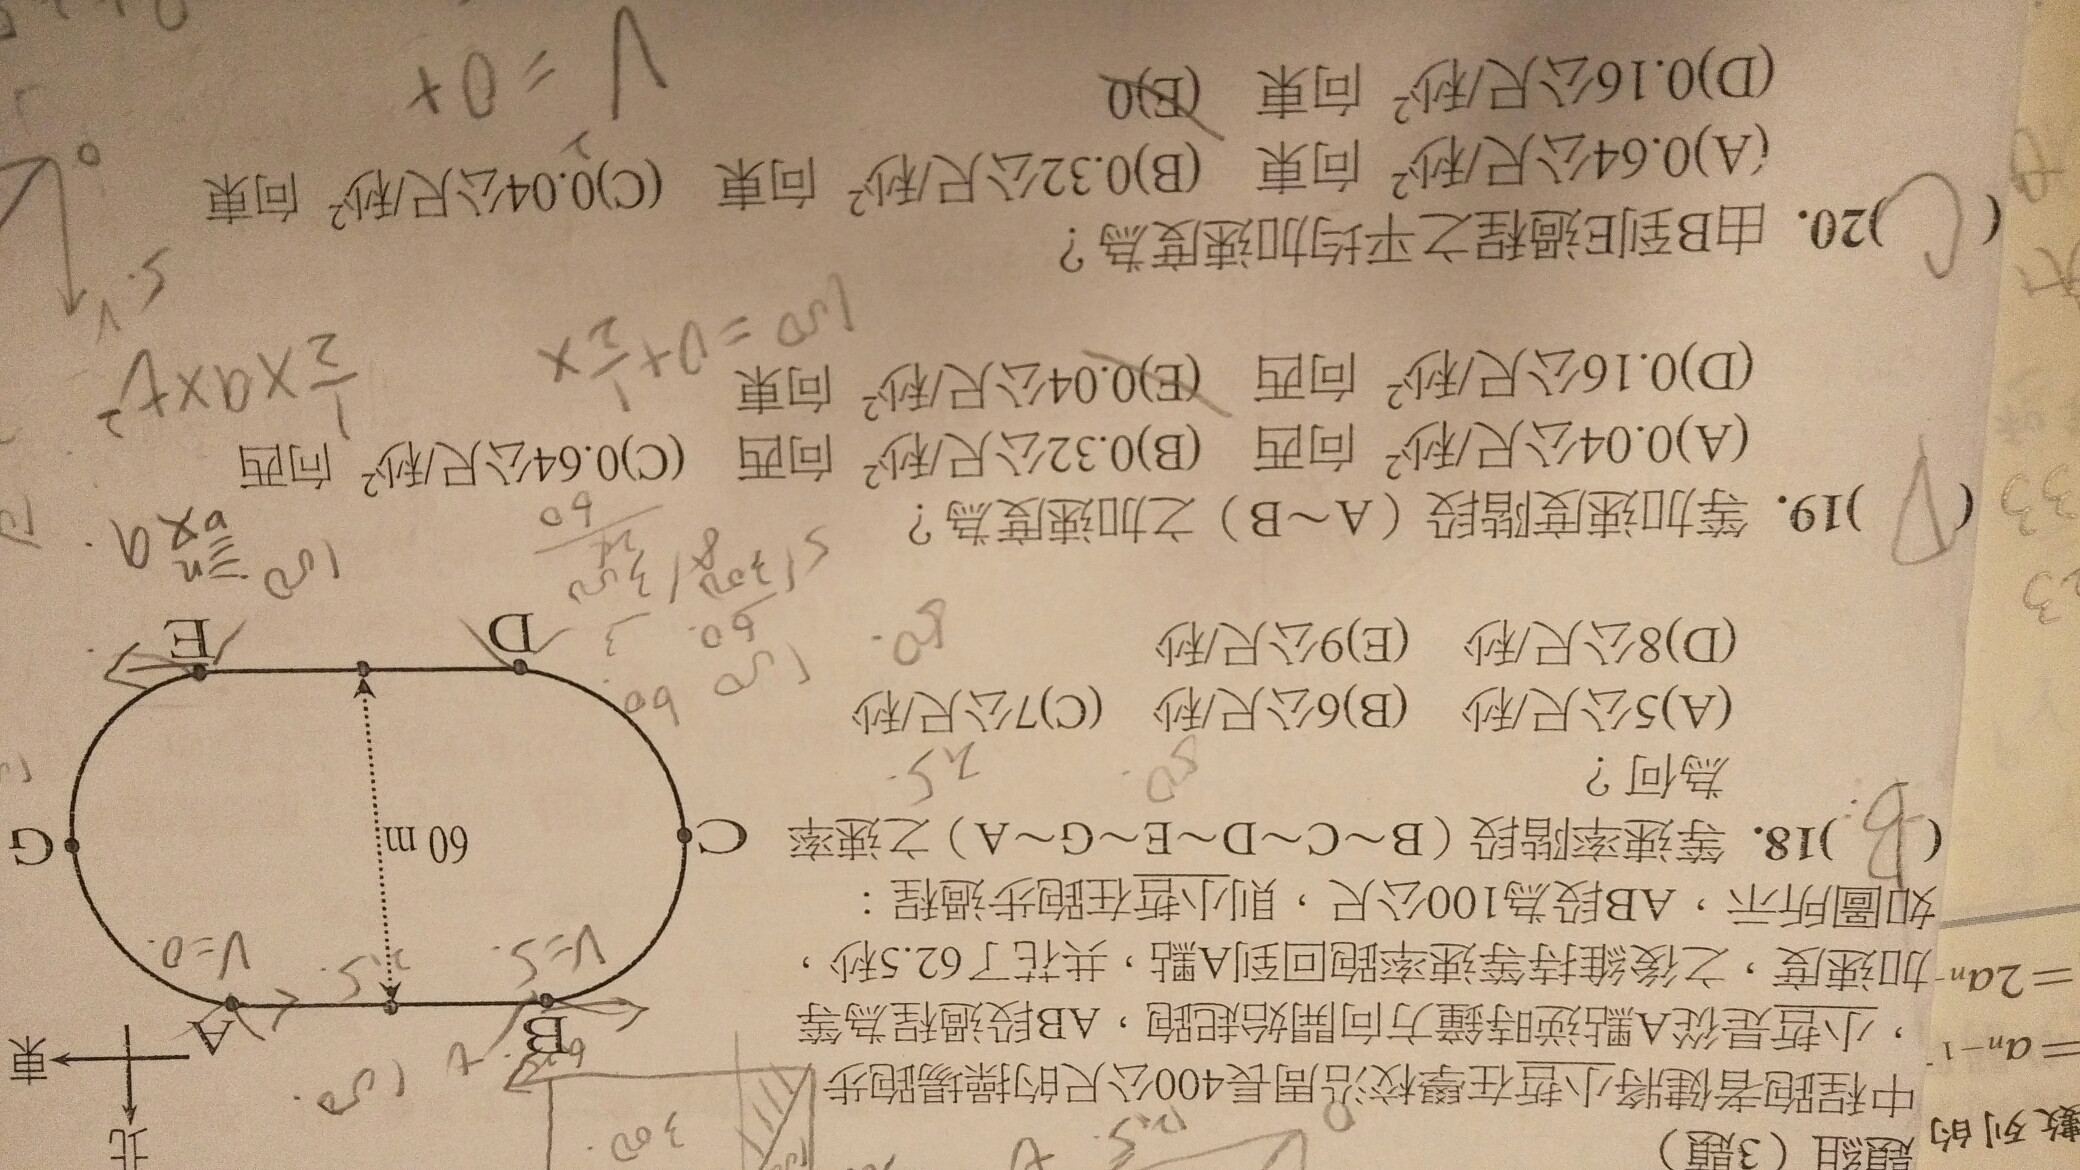 題組（3題）
中程跑者健將小哲在學校沿周長400公尺的操場跑步
，小哲是從A點逆時鐘方向開始起跑，AB段過程為等
加速度，之後維持等速率跑回到A點，共花了62.5秒，
如圖所示，AB段為100公尺，則小哲在跑步過程：
( B )18. 等速率階段（B～C～D～E～G～A）之速率
為何？
(A)5公尺/秒 (B)6公尺/秒 (C)7公尺/秒
(D)8公尺/秒 (E)9公尺/秒
( D )19. 等加速度階段（A～B）之加速度為？
(A)0.04公尺/秒² 向西 (B)0.32公尺/秒² 向西 (C)0.64公尺/秒² 向西
(D)0.16公尺/秒² 向西 (E)0.04公尺/秒² 向東
( C )20. 由B到E過程之平均加速度為？
(A)0.64公尺/秒² 向東 (B)0.32公尺/秒² 向東 (C)0.04公尺/秒² 向東
(D)0.16公尺/秒² 向東 (E)0
北
東
B
A
V=5
2.5
V=0
C
60 m
G
D
E
數列的
=aₙ₋₁
=2aₙ
300
12.5
t
100
2.5
50
60
½×a×t²
100=0+½×
V=0+